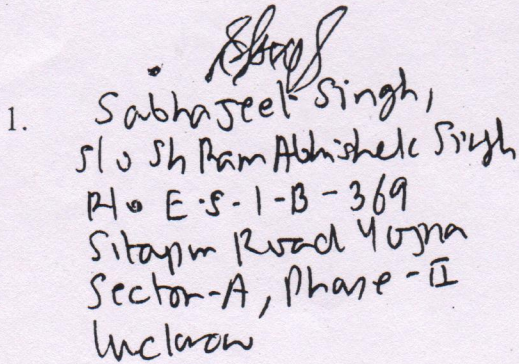 1. Sabhajeet Singh,
S/o Sh Ram Abhishek Singh
R/o E-S-1-B-369
Sitapur Road Yojna
Sector-A, Phase-II
Lucknow